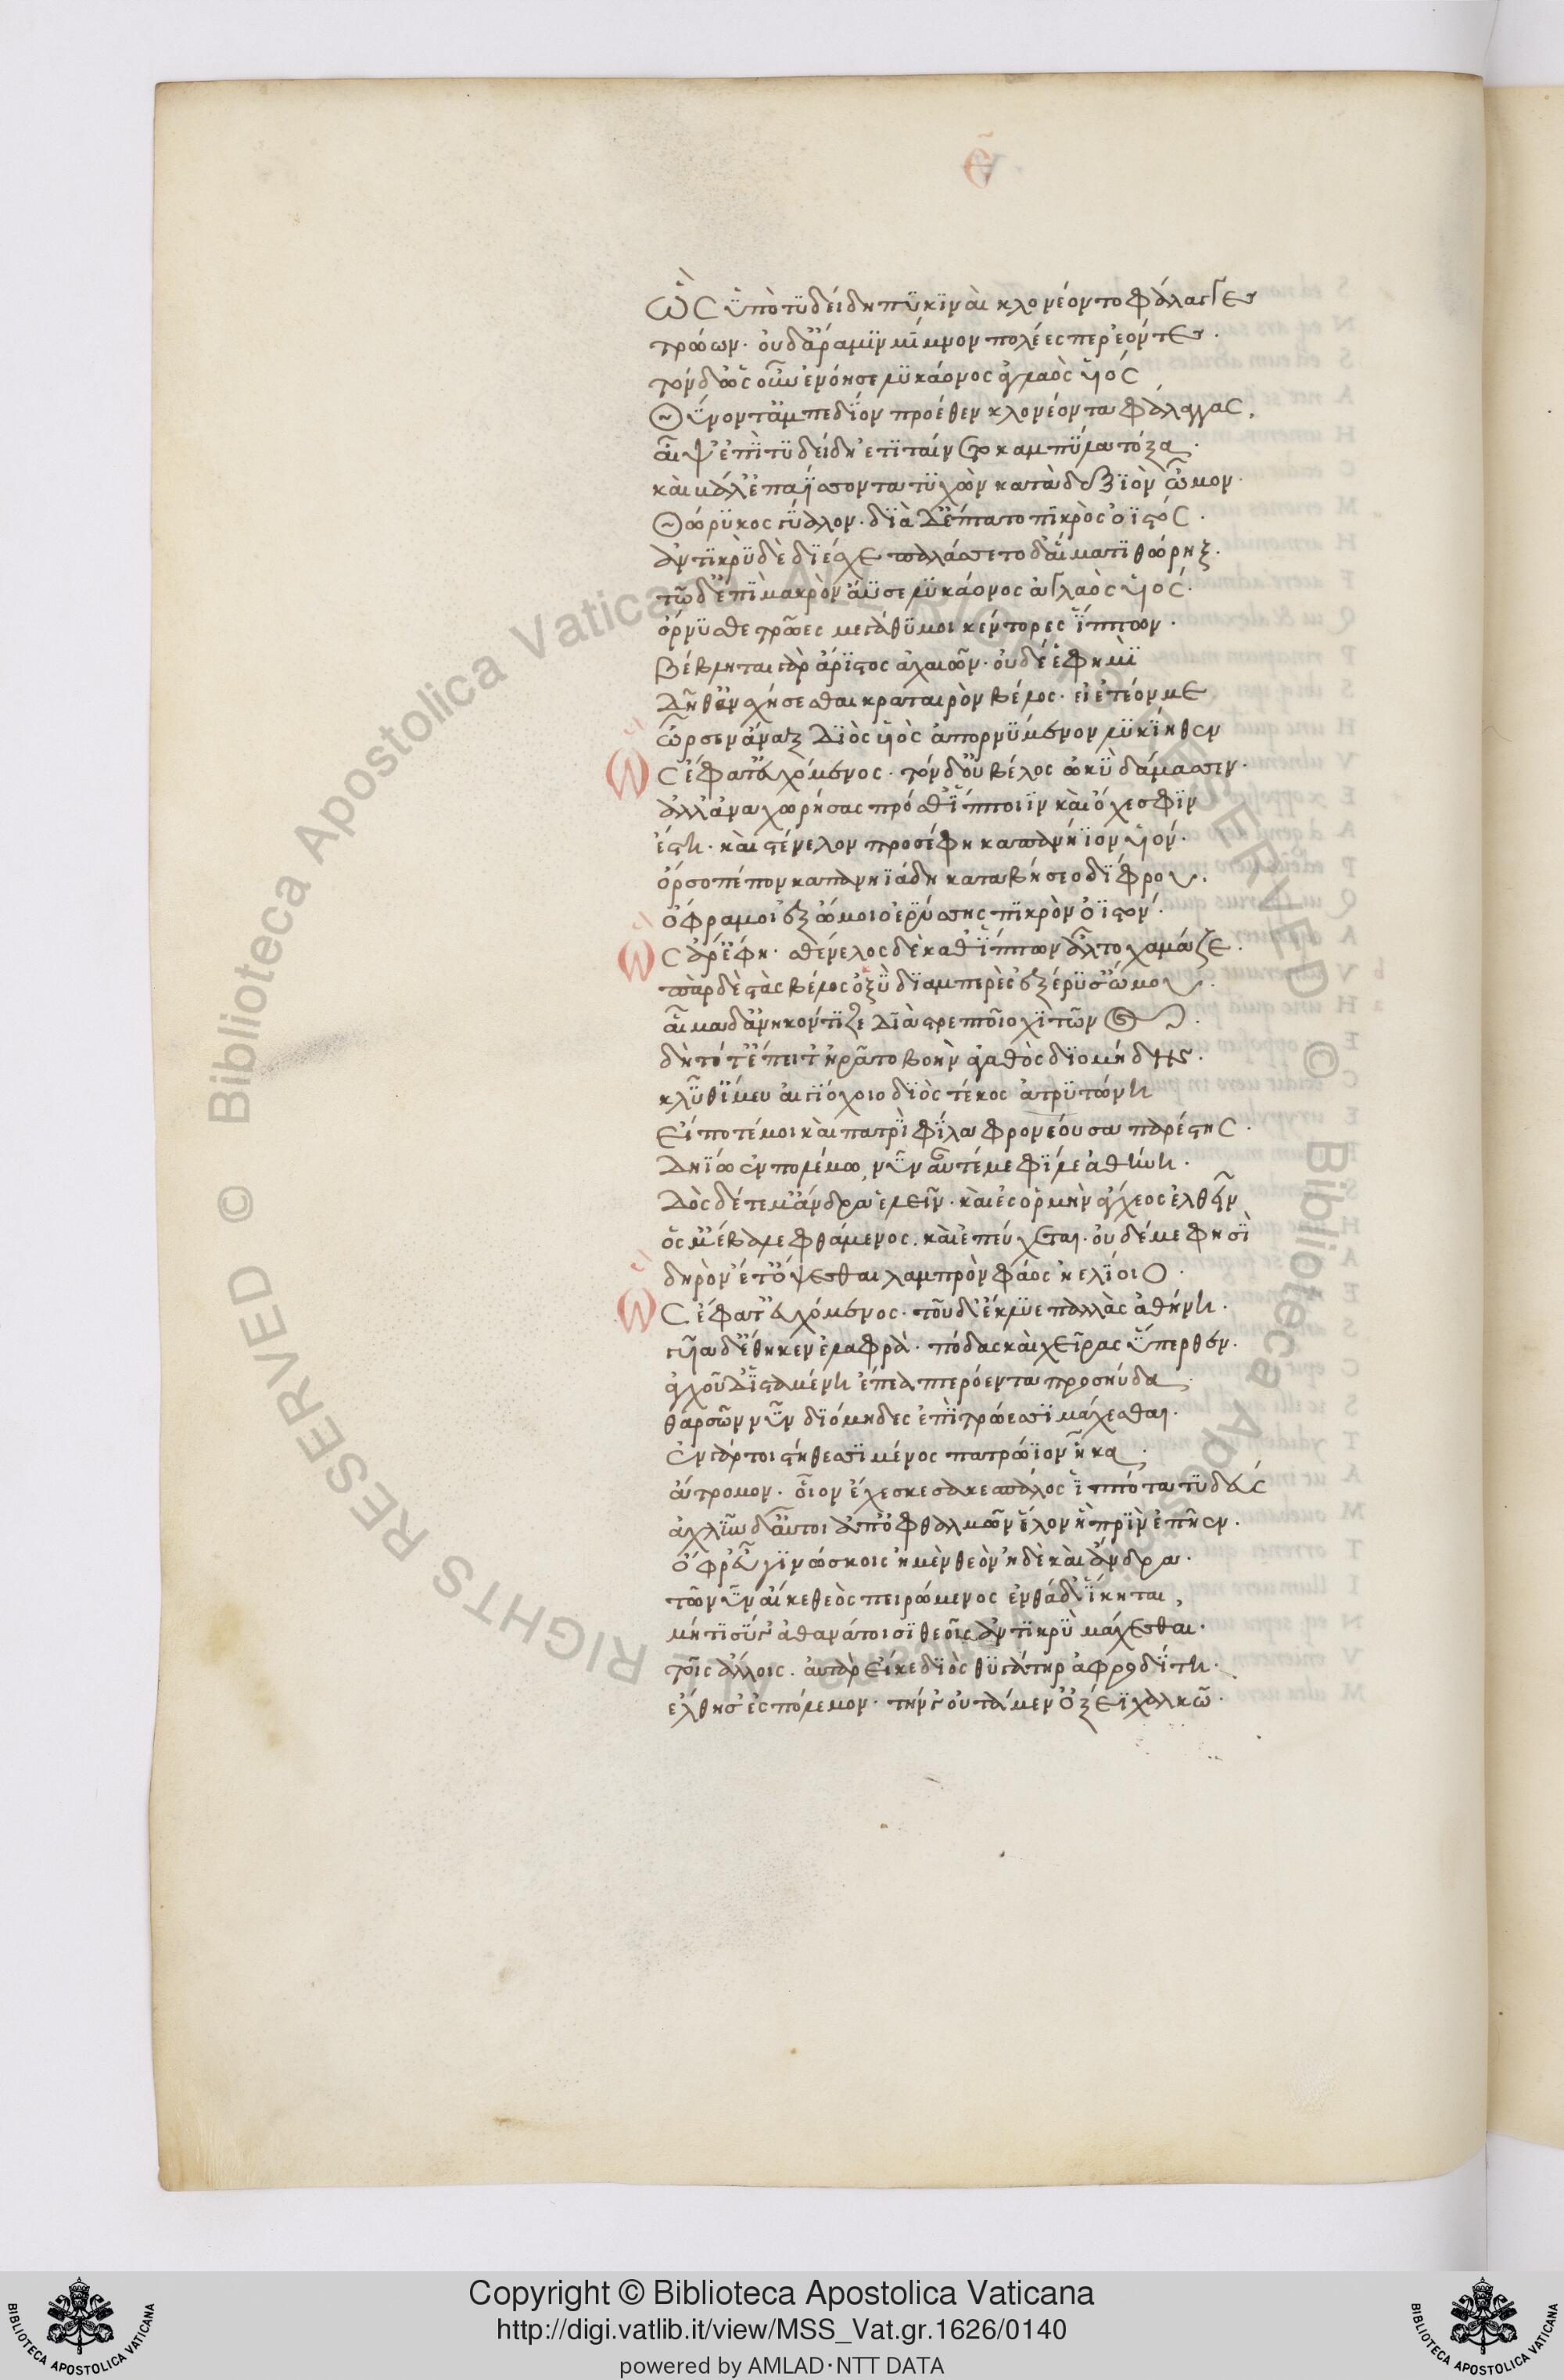 ε
ὣς ὑπὸ τυδείδη πυκιναὶ κλονέοντο φάλαγγες
τρώων· οὐδ' ἄρα μιν μίμνον πολέες περ ἐόντες·
τὸν δ' ὡς οὖν ἐνόησε λυκάονος ἀγλαὸς υἱός
θύνοντ' ἀμπεδίον προέθεν κλονέοντα φάλαγγας,
αἶψ' ἐπὶ τυδείδῃ ἐτιταίνετο καμπύλα τόξα·
καὶ βάλ' ἐπαΐσσοντα τυχὼν κατὰ δεξιὸν ὦμον·
θώρυκος γύαλον· διὰ δ' ἔπτατο πικρὸς ὀϊστός·
ἀντικρὺ δὲ διέσχε παλάσσετο δ' αἵματι θώρηξ·
τῶ δ' ἐπὶ μακρὸν ἄϋσε λυκάονος ἀγλαὸς υἱός·
ὄρνυσθε τρῶες μεγάθυμοι κέντορες ἵππων·
βέβληται γὰρ ἄριστος ἀχαιῶν· οὐδέ ἑ φημὶ
δῆθ' ἀνσχήσεσθαι κρατερὸν βέλος· εἰ ἐτεόν με
ὦρσεν ἄναξ διὸς υἱὸς ἀπορνύμενον λυκίηθεν
ὣς ἔφατ' εὐχόμενος· τὸν δ' οὐ βέλος ὠκὺ δάμασσεν·
ἀλλ' ἀναχωρήσας πρόσθ' ἵπποιϊν καὶ ὄχεσφιν
ἔστη· καὶ σθένελον προσέφη καπανήϊον υἱόν·
ὄρσο πέπον καπανηϊάδη καταβήσεο δίφρου·
ὄφρα μοι ἐξ ὤμοιο ἐρύσσῃς πικρὸν ὀϊστόν·
ὣς ἄρ' ἔφη· σθένελος δὲ καθ' ἵππων ἆλτο χαμᾶζε·
πὰρ δὲ στὰς βέλος ὀξὺ διαμπερὲς ἐξέρυσ' ὤμου·
αἷμα δ' ἀνηκόντιζε διὰ στρεπτοῖο χιτῶνος·
δὴ τότ' ἔπειτ' ἠρᾶτο βοὴν ἀγαθὸς διομήδης·
κλῦθί μευ αἰγιόχοιο διὸς τέκος ἀτρυτώνη
εἴ ποτέ μοι καὶ πατρὶ φίλα φρονέουσα παρέστης·
δηΐω ἐν πολέμω, νῦν αὖτ' ἐμὲ φίλε ἀθήνη·
δὸς δέ τέ μ' ἄνδρα ἑλεῖν· καὶ ἐς ὁρμὴν ἔγχεος ἐλθεῖν
ὅς μ' ἔβαλε φθάμενος· καὶ ἐπεύχεται· οὐδέ με φησὶ
δηρὸν ἔτ' ὄψεσθαι λαμπρὸν φάος ἠελίοιο·
ὣς ἔφατ' εὐχόμενος· τοῦ δ' ἔκλυε παλλὰς ἀθήνη·
γυῖα δ' ἔθηκεν ἐλαφρὰ· πόδας καὶ χεῖρας ὕπερθεν·
ἀγχοῦ δ' ἱσταμένη ἔπεα πτερόεντα προσηύδα·
θαρσῶν νῦν διόμηδες ἐπὶ τρώεσσι μάχεσθαι·
ἐν γάρ τοι στήθεσσι μένος πατρώϊον ἧκα·
ἄτρομον· οἷον ἔχεσκε σακέσπαλος ἱππότα τυδεύς
ἀχλὺν δ' αὖ τοι ἀπ' ὀφθαλμῶν ἕλον ἣ πρὶν ἐπῆεν·
ὄφρ' εὖ γινώσκοις ἠμὲν θεὸν ἠδὲ καὶ ἄνδρα·
τῶ νῦν αἴ κε θεὸς πειρώμενος ἐνθάδ' ἵκηται,
μή τι σύ γ' ἀθανάτοισι θεοῖς ἀντικρὺ μάχεσθαι·
τοῖς ἄλλοις· ἀτὰρ εἴ κε διὸς θυγάτηρ ἀφροδίτη·
ἔλθησ' ἐς πόλεμον· τήν γ' οὐτάμεν ὀξέϊ χαλκῶ·
Copyright © Biblioteca Apostolica Vaticana
http://digi.vatlib.it/view/MSS_Vat.gr.1626/0140
powered by AMLAD·NTT DATA